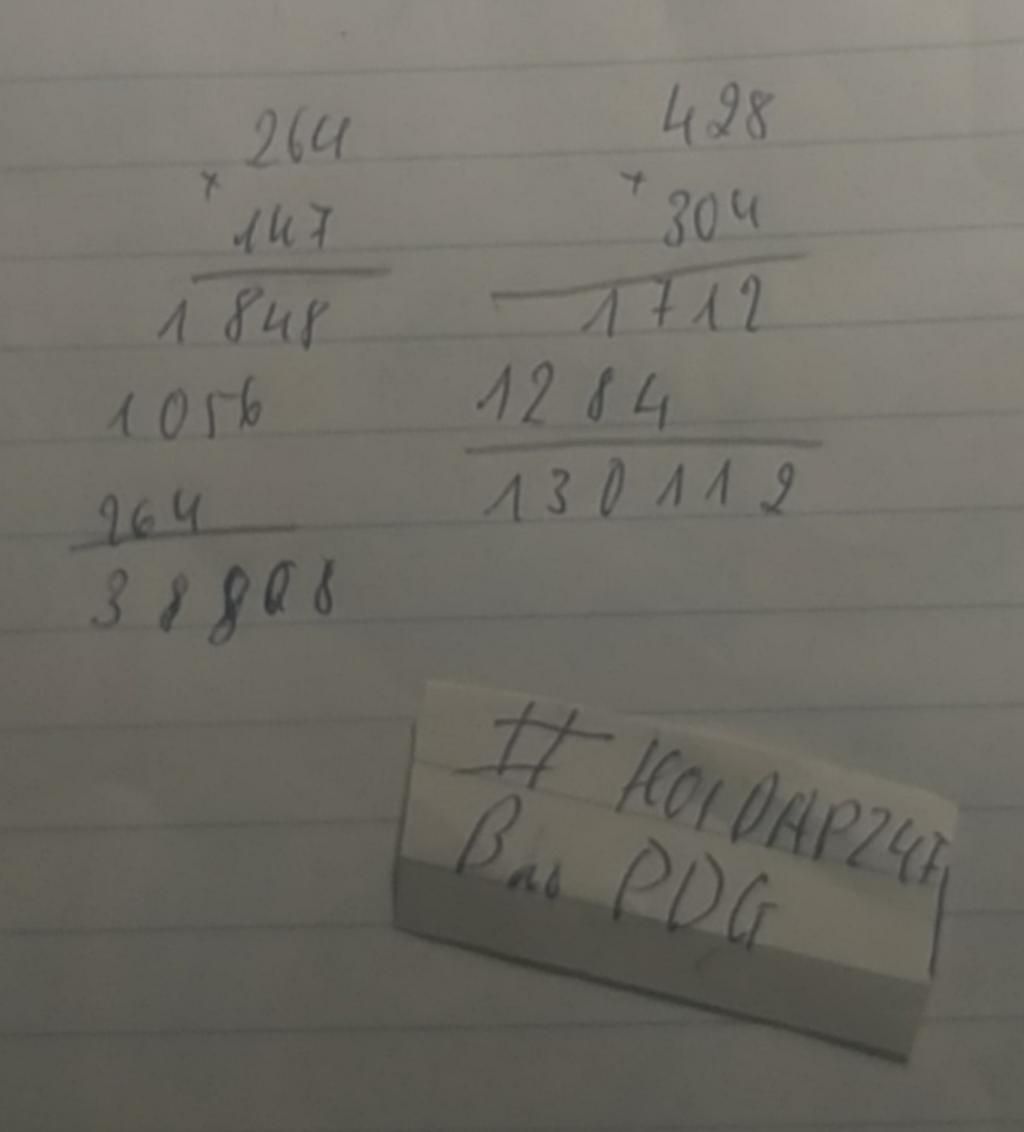 264
×
147
1848
1056
264
38808
428
×
304
1712
1284
130112
# HOLDAP247
PDG